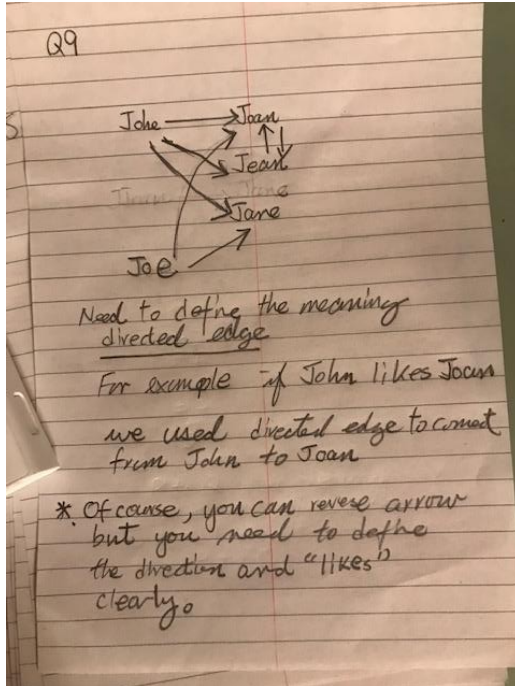 Q9
John Joan
Jean
Jane
Joe
Need to define the meaning
directed edge
For example if John likes Joan
we used directed edge to connect
from John to Joan
* Of course, you can revese arrow
but you need to define
the direction and "likes"
clearly.